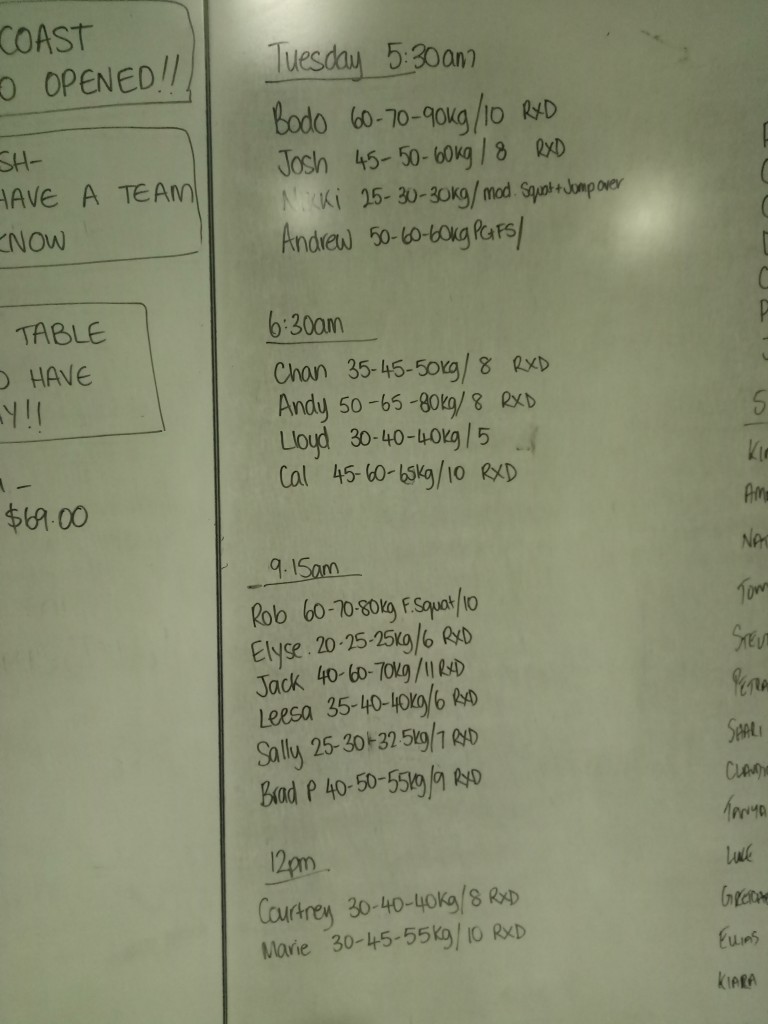 COAST
O OPENED!!
SH-
HAVE A TEAM
KNOW
TABLE
O HAVE
Y!!
-
$69.00
Tuesday 5:30am
Bodo 60-70-90kg/10 RXD
Josh 45-50-60kg/8 RXD
Nikki 25-30-30kg/mod. Squat+Jump over
Andrew 50-60-60kg PC+FS/
6:30am
Chan 35-45-50kg/8 RXD
Andy 50-65-80kg/8 RXD
Lloyd 30-40-40kg/5
Cal 45-60-65kg/10 RXD
9.15am
Rob 60-70-80kg F.Squat/10
Elyse. 20-25-25kg/6 RXD
Jack 40-60-70kg/11 RXD
Leesa 35-40-40kg/6 RXD
Sally 25-30-32.5kg/7 RXD
Brad P 40-50-55kg/9 RXD
12pm
Courtney 30-40-40kg/8 RXD
Marie 30-45-55kg/10 RXD
S
KI
AM
NA
TOM
STEV
PETRA
SHARI
CLAUD
TANYA
LUKE
GRETCH
KIARA